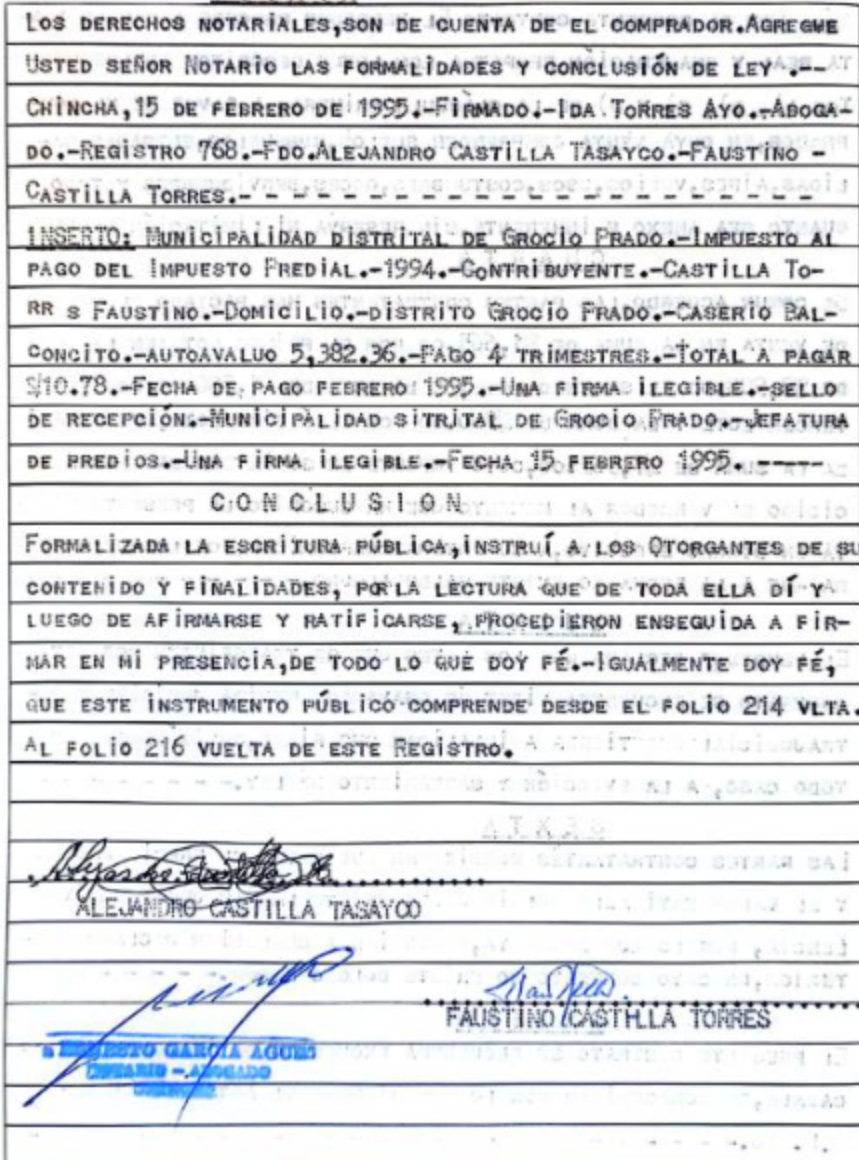 LOS DERECHOS NOTARIALES,SON DE CUENTA DE EL COMPRADOR.AGREGUE
USTED SEÑOR NOTARIO LAS FORMALIDADES Y CONCLUSIÓN DE LEY .--
CHINCHA,15 DE FEBRERO DE 1995.-FIRMADO.-IDA TORRES AYO.-ABOGA-
DO.-REGISTRO 768.-FDO.ALEJANDRO CASTILLA TASAYCO.-FAUSTINO -
CASTILLA TORRES.- - - - - - - - - - - - - - - - - - - -
INSERTO: MUNICIPALIDAD DISTRITAL DE GROCIO PRADO.-IMPUESTO AL
PAGO DEL IMPUESTO PREDIAL.-1994.-CONTRIBUYENTE.-CASTILLA TO-
RR S FAUSTINO.-DOMICILIO.-DISTRITO GROCIO PRADO.-CASERIO BAL-
CONCITO.-AUTOAVALUO 5,382.36.-PAGO 4 TRIMESTRES.-TOTAL A PAGAR
S/10.78.-FECHA DE PAGO FEBRERO 1995.-UNA FIRMA ILEGIBLE.-SELLO
DE RECEPCIÓN.-MUNICIPALIDAD SITRITAL DE GROCIO PRADO.-JEFATURA
DE PREDIOS.-UNA FIRMA ILEGIBLE.-FECHA 15 FEBRERO 1995. -----
C O N C L U S I O N
FORMALIZADA LA ESCRITURA PÚBLICA,INSTRUÍ A LOS OTORGANTES DE SU
CONTENIDO Y FINALIDADES, POR LA LECTURA QUE DE TODA ELLA DÍ Y
LUEGO DE AFIRMARSE Y RATIFICARSE, PROCEDIERON ENSEGUIDA A FIR-
MAR EN MI PRESENCIA,DE TODO LO QUE DOY FÉ.-IGUALMENTE DOY FÉ,
QUE ESTE INSTRUMENTO PÚBLICO COMPRENDE DESDE EL FOLIO 214 VLTA.
AL FOLIO 216 VUELTA DE ESTE REGISTRO.
ALEJANDRO CASTILLA TASAYCO
FAUSTINO CASTILLA TORRES
ERNESTO GARCIA AGUES
NOTARIO - ABOGADO